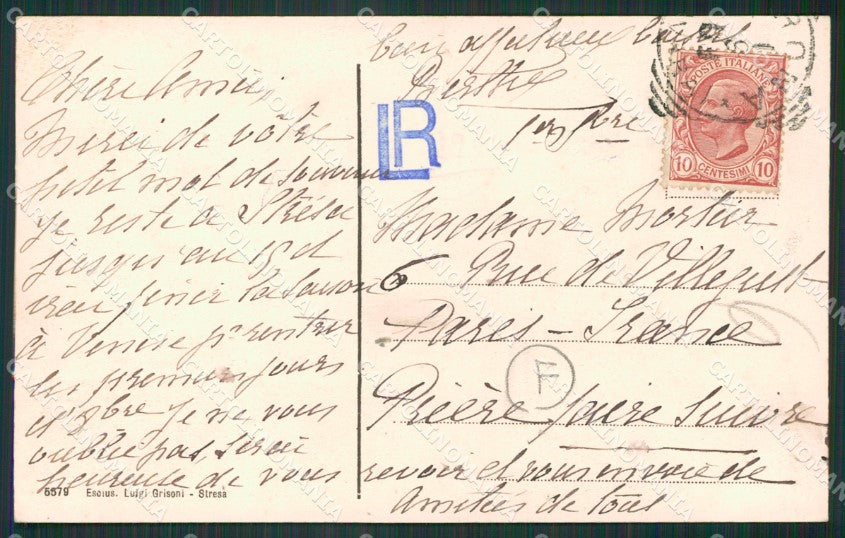 Chère Amie,
Merci de vôtre
petit mot de souvenir
Je reste à Strésa
jusqu'au 15 d
irai finir la saison
à Venise pr rentrer
les premiers jours
d'8bre Je ne vous
oublie pas serai
heureuse de vous
revoir et vous envoie de
Amitiés de tout
Berthe
1er 7bre
LR
POSTE ITALIANE
10 CENTESIMI 10
Madame
6 Rue de
Paris - France
Prière faire suivre
F
5579 Esclus. Luigi Grisoni - Stresa
CARTOLINOMANIA